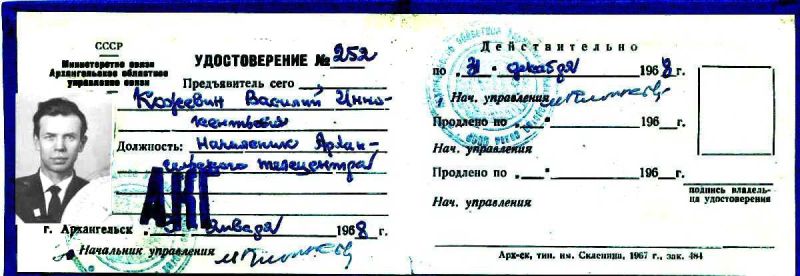 СССР
Министерство связи
Архангельское областное
управление связи
УДОСТОВЕРЕНИЕ № 252
Предъявитель сего
Кожевин Василий Инно-
кентьевич
Должность: Начальник Архан-
гельского телецентра
АКГ
г. Архангельск января 1968 г.
Начальник управления
Действительно
по 31 декабря 1968 г.
Нач. управления
Продлено по 196 г.
Нач. управления
Продлено по 196 г.
Нач. управления
подпись владель-
ца удостоверения
Арх-ск, тип. им. Склепина, 1967 г., зак. 484